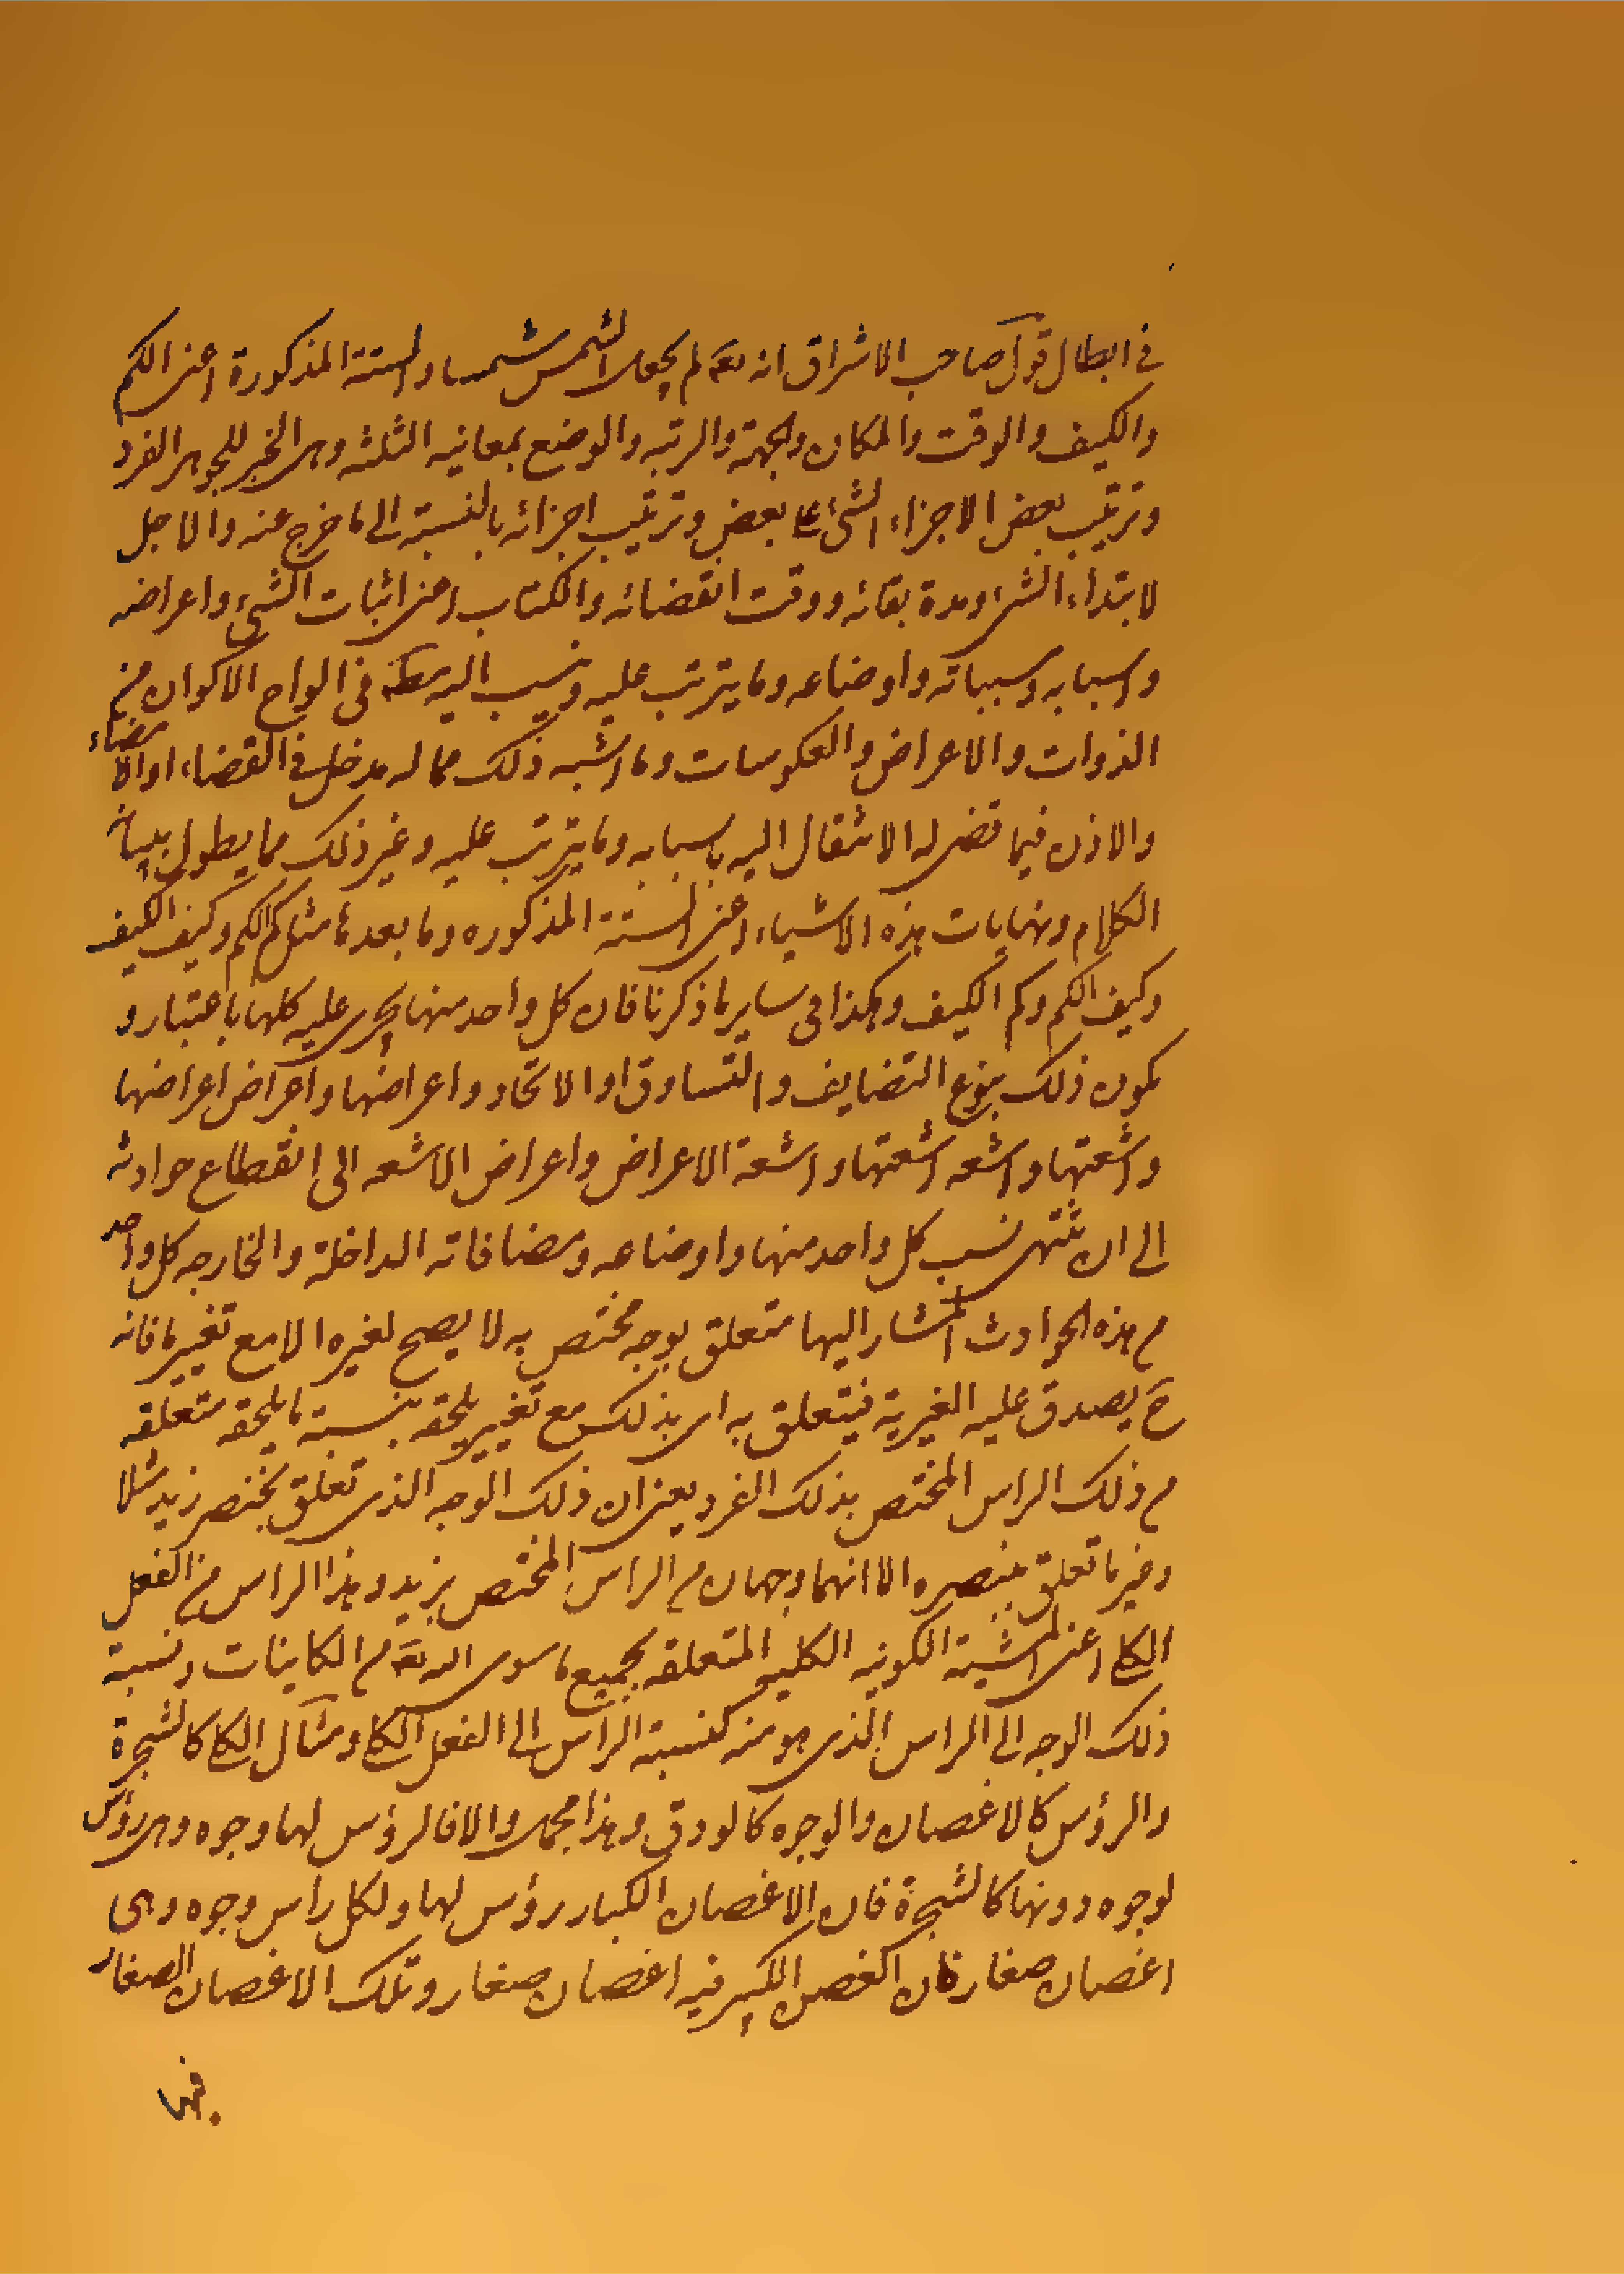 في ابطال قول صاحب الاشراق انه تع لم يجعل الشمس شمسا والستة المذكورة اعنى الكم
والكيف والوقت والمكان والجهة والرتبه والوضع بمعانيه الثلثه وهى الخبر للجوهر الفرد
وترتيب بعض الاجزاء الشئ على بعض وترتيب اجزائه بالنسبة الى ما خرج عنه والاجل
لابتداء الشئ ومدة بقائه ووقت انقضائه والكتاب اعنى اثبات الشئ واعراضه
واسبابه ومسبباته واوضاعه وما يترتب عليه وينسب اليه في الواح الاكوان من
الذوات والاعراض والعكوسات وما اشبه ذلك مما له مدخل في القضاء او الامضاء
والاذن فيما قضى له الانتقال اليه باسبابه وما يترتب عليه وغير ذلك مما يطول ببيانه
الكلام ونهايات هذه الاشياء اعنى الستة المذكوره وما بعدها مثل كم الكم وكيف الكيف
وكيف الكم وكم الكيف وهكذا فى ساير ما ذكرنا فان كل واحد منها يجرى عليه كلها باعتبار و
يكون ذلك بنوع التضايف والتساوق او الاتحاد واعراضها واعراض اعراضها
واشعتها واشعه اشعتها واشعة الاعراض واعراض الاشعه الى انقطاع حوادثه
الى ان تنتهى نسب كل واحد منها واوضاعه ومضافاته الداخلة والخارجه كل واحد
من هذه الحوادث المشار اليها متعلق بوجه مختص به لا يصح لغيره الا مع تغيير ما فانه
ح يصدق عليه الغيرية فيتعلق به اى بذلك مع تغيير يلحقه بنسبة ما يلحقه متعلقه
من ذلك الراس المختص بذلك الفرد يعنى ان ذلك الوجه الذى تعلق بخنصر زيد مثلا
غير ما تعلق ببنصره الا انهما وجهان من الراس المختص بزيد وهذا الراس من الفعل
الكلى اعنى المشية الكونيه الكليه المتعلقه بجميع ما سوى الله تع من الكاينات ونسبة
ذلك الوجه الى الراس الذى هو منه كنسبة الراس الى الفعل الكلى ومثال الكلى كالشجرة
والرؤس كالاغصان والوجوه كالورق وهذا مجمل والا فالرؤس لها وجوه وهى رؤس
لوجوه دونها كالشجرة فان الاغصان الكبار رؤس لها ولكل راس وجوه وهى
اغصان صغار فان الغصن الكبير فيه اغصان صغار وتلك الاغصان الصغار
فيها